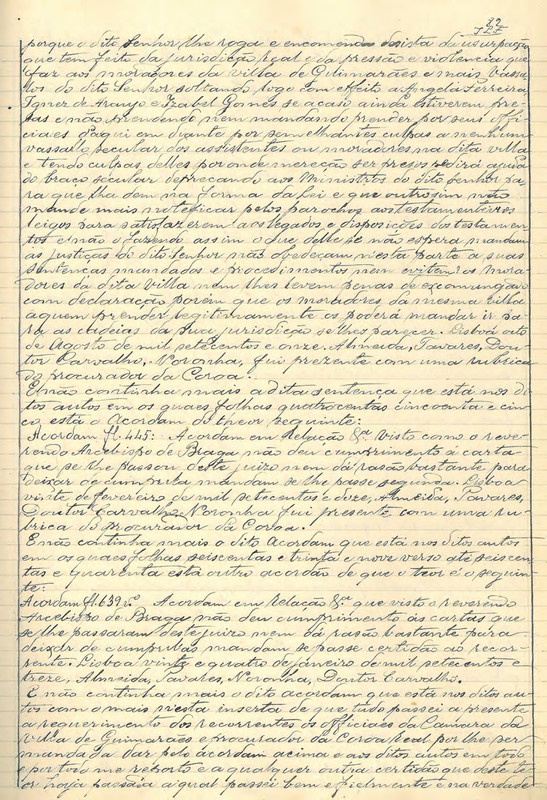 22
porque o dito Senhor lhe roga e encomenda desista da usurpação
que tem feito da jurisdição real e da pressão e violencia que
faz aos moradores da villa de Guimarães e mais vassa-
los do dito Senhor soltando logo com effeito a Angela Ferreira
Ignez de Araujo e Izabel Gomes se acaso ainda estiverem pre-
sas e não prendendo nem mandando prender por seus offi-
ciaes d'aqui em deante por similhantes culpas a nenhum
vassalo secular dos assistentes ou moradores na dita villa
e tendo culpas delles por onde mereção ser presos pedirá ajuda
do braço secular deprecando aos Ministros do dito Senhor pa-
ra que lha dem na forma da Lei e que outrosim não
mande mais noteficar pelos parochos aos testamenteiros
leigos para satisfazerem aos legados e disposições dos testamen-
tos e não o fazendo assim o que delle se não espera mandam
ás justiças do dito Senhor não obedeçam n'esta parte a suas
sentenças mandados e procedimentos nem evitem os mora-
dores da dita villa nem lhes levem penas de excomungão
com declaração porem que os moradores da mesma villa
a quem prender legitimamente os poderá mandar ir pa-
ra as cadeias da sua jurisdição se lhes parecer. Lisboa oito
de Agosto de mil setecentos e onze. Almeida, Tavares, Dou-
tor Carvalho, Noronha, fui prezente com uma rubrica
do procurador da Coroa.
E não continha mais a dita sentença que está nos di-
tos autos em os quaes folhas quatrocentas cincoenta e cin-
co, está o Acordam do theor seguinte:
Acordam fl. 445: Acordam em Relação &ª Visto como o reve-
rendo Arcebispo de Braga não deu cumprimento á carta
que se lhe passou deste juizo nem dá rasão bastante para
deixar de cumprila mandam se lhe passe segunda. Lisboa
vinte de fevereiro de mil setecentos e doze, Almeida, Tavares,
Doutor Carvalho, Noronha fui presente com uma ru-
brica do procurador da Coroa.
E não continha mais o dito Acordam que está nos ditos autos
em os quaes folhas seiscentas e trinta e nove verso até seiscen-
tas e quarenta está outro acordão de que o teor é o seguin-
te:
Acordam fl. 639 vº Acordam em Relação &ª que visto o reverendo
Arcebispo de Braga não deu cumprimento ás cartas que
se lhe passaram deste juizo nem dá rasão bastante para
deixar de cumprilas mandam se passe certidão ao recor-
rente. Lisboa vinte e quatro de janeiro de mil setecentos e
treze, Almeida, Tavares, Noronha, Doutor Carvalho.
E não continha mais o dito acordam que está nos ditos au-
tos com o mais nesta inserta de que tudo passei a presente
a requerimento dos recorrentes os Officiaes da Camara da
villa de Guimarães e procurador da Coroa Real por lhe ser
mandada dar pelo acordam acima e aos ditos autos em todo
e por todo me reporto e a qualquer outra certidão que deste te-
or haja passada a qual passei bem e fielmente e na verdade